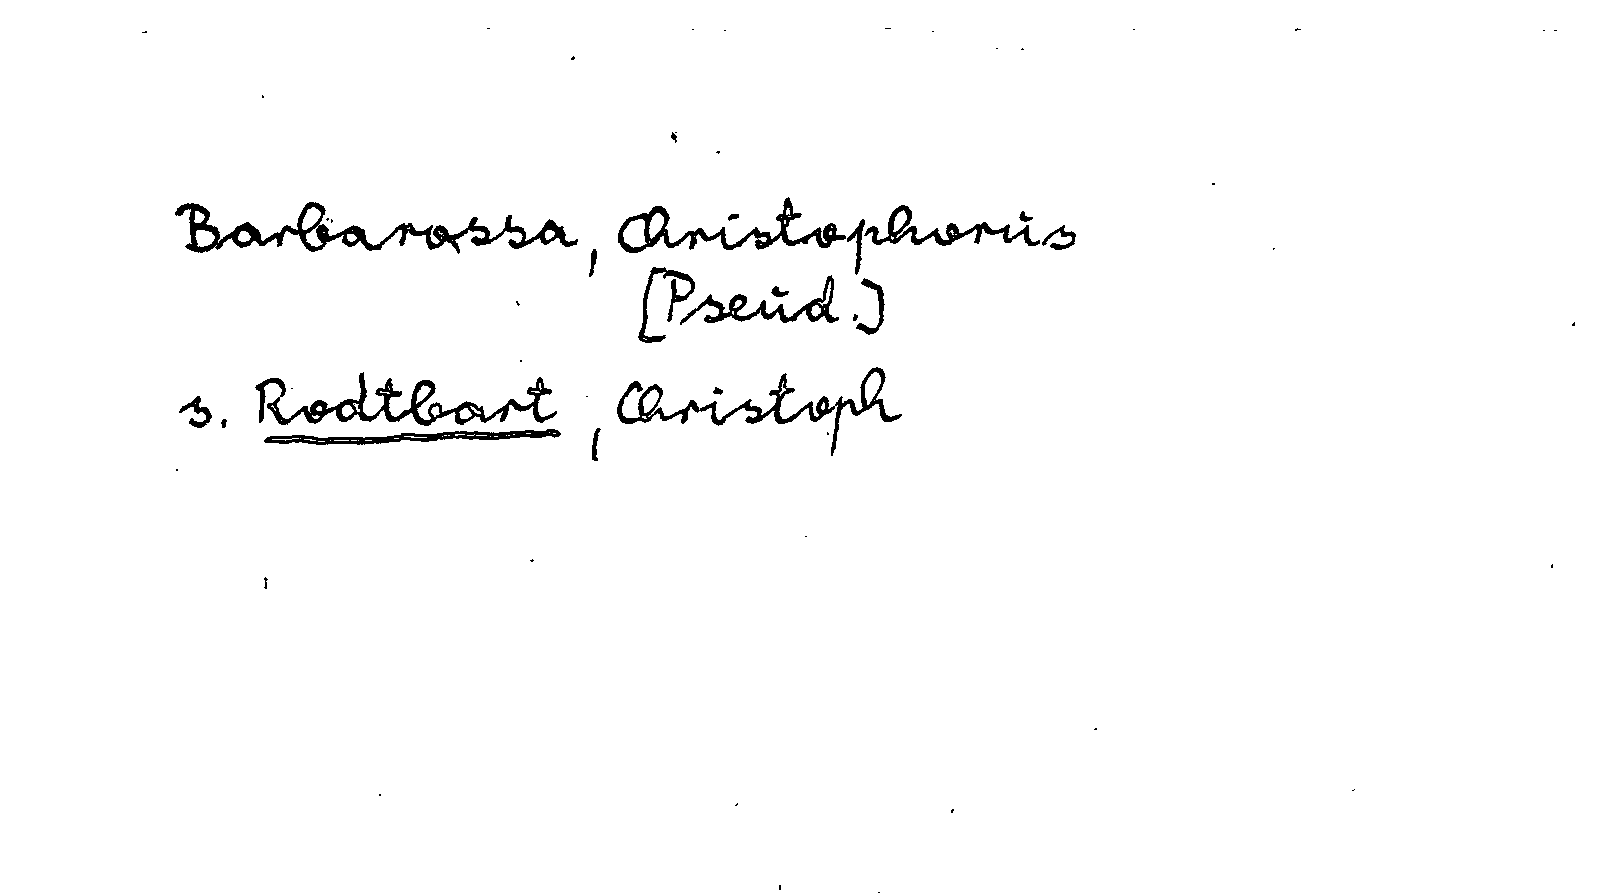 Barbarossa, Christophorus
[Pseud.]
s. Rodtbart, Christoph